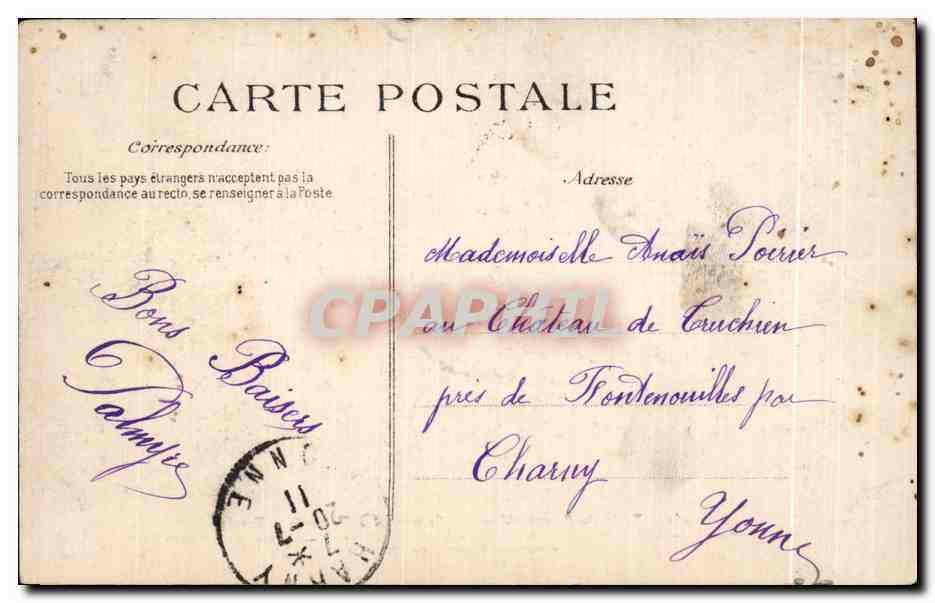 CARTE POSTALE
Correspondance:
Tous les pays étrangers n'acceptent pas la
correspondance au recto, se renseigner à la Poste
Adresse
Mademoiselle Anaïs Poirier
au Château de Truchien
près de Fontenouilles par
Charny
Yonne
Bons Baisers
Palmyre
CPAPHIL
CHARNY
YONNE
11
20-7